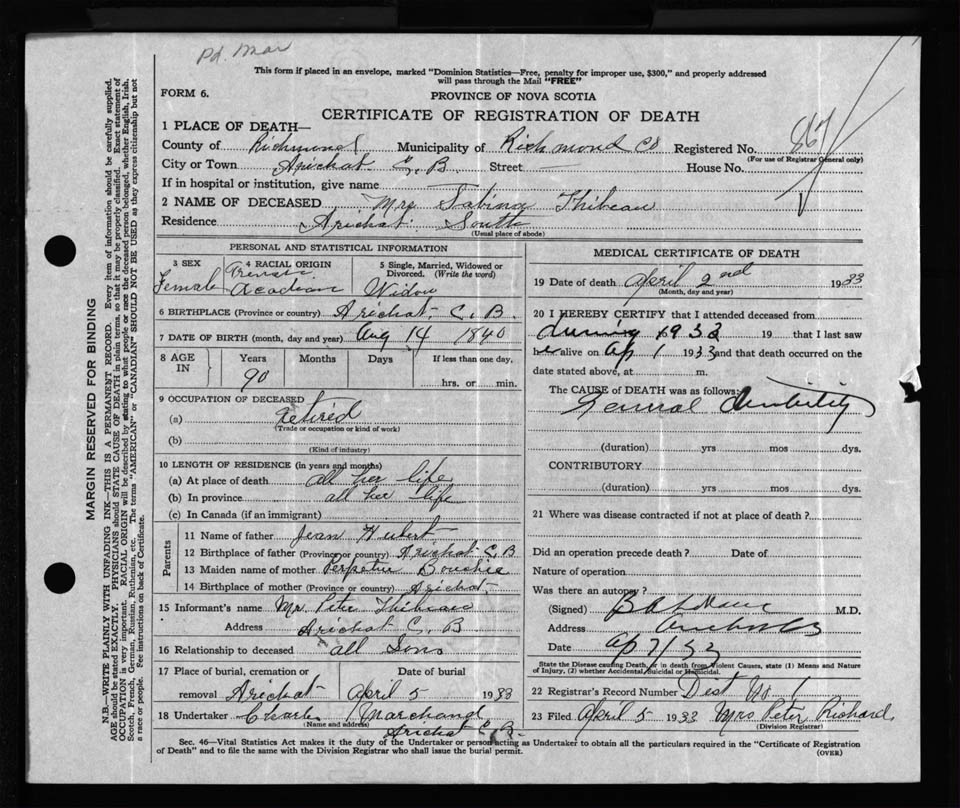 Pd. Mar
This form if placed in an envelope, marked "Dominion Statistics—Free, penalty for improper use, $300," and properly addressed
will pass through the Mail "FREE"
FORM 6.
PROVINCE OF NOVA SCOTIA
CERTIFICATE OF REGISTRATION OF DEATH
1 PLACE OF DEATH—
County of Richmond Municipality of Richmond Co Registered No.
(For use of Registrar General only)
City or Town Arichat C.B. Street House No.
If in hospital or institution, give name
2 NAME OF DECEASED Mrs Sabina Thibeau
Residence Arichat South
(Usual place of abode)
PERSONAL AND STATISTICAL INFORMATION
3 SEX 4 RACIAL ORIGIN 5 Single, Married, Widowed or Divorced. (Write the word)
Female French Acadian Widow
6 BIRTHPLACE (Province or country) Arichat C.B.
7 DATE OF BIRTH (month, day and year) Aug 14 1840
8 AGE IN Years Months Days If less than one day,
90 hrs. or min.
9 OCCUPATION OF DECEASED
(a) retired
(Trade or occupation or kind of work)
(b)
(Kind of industry)
10 LENGTH OF RESIDENCE (in years and months)
(a) At place of death all her life
(b) In province all her life
(c) In Canada (if an immigrant)
Parents
11 Name of father Jean Hubert
12 Birthplace of father (Province or country) Arichat C B
13 Maiden name of mother Perpetue Bouchie
14 Birthplace of mother (Province or country) Arichat
15 Informant's name Mr. Peter Thibeau
Address Arichat C. B
16 Relationship to deceased all Sons
17 Place of burial, cremation or Date of burial
removal Arichat April 5 1933
18 Undertaker Charles Marchand
(Name and address)
Arichat C.B.
MEDICAL CERTIFICATE OF DEATH
19 Date of death April 2nd 1933
(Month, day and year)
20 I HEREBY CERTIFY that I attended deceased from
during 1933 19 that I last saw
her alive on Ap 1 1933 and that death occurred on the
date stated above, at m.
The CAUSE of DEATH was as follows:
General
(duration) yrs mos dys.
CONTRIBUTORY
(duration) yrs mos dys.
21 Where was disease contracted if not at place of death?
Did an operation precede death? Date of
Nature of operation
Was there an autopsy?
(Signed) M.D.
Address
Date Ap 7/33
State the Disease causing Death, or in death from Violent Causes, state (1) Means and Nature of
Injury, (2) whether Accidental, Suicidal or Homicidal.
22 Registrar's Record Number Dist No. 1
23 Filed April 5 1933 Mrs Peter Richard
(Division Registrar)
Sec. 46—Vital Statistics Act makes it the duty of the Undertaker or person acting as Undertaker to obtain all the particulars required in the "Certificate of Registration
of Death" and to file the same with the Division Registrar who shall issue the burial permit. (OVER)
MARGIN RESERVED FOR BINDING
N.B.—WRITE PLAINLY WITH UNFADING INK—THIS IS A PERMANENT RECORD. Every item of information should be carefully supplied.
AGE should be stated EXACTLY. PHYSICIANS should STATE CAUSE OF DEATH in plain terms, so that it may be properly classified. Exact statement of
OCCUPATION is very important. RACIAL ORIGIN will be described by stating to what people or race the deceased person belonged, whether English, Irish,
Scotch, French, German, Russian, Ruthenian, etc. The terms "AMERICAN" or "CANADIAN" SHOULD NOT BE USED as they express citizenship but not
a race or people. Fee instructions on back of Certificate.